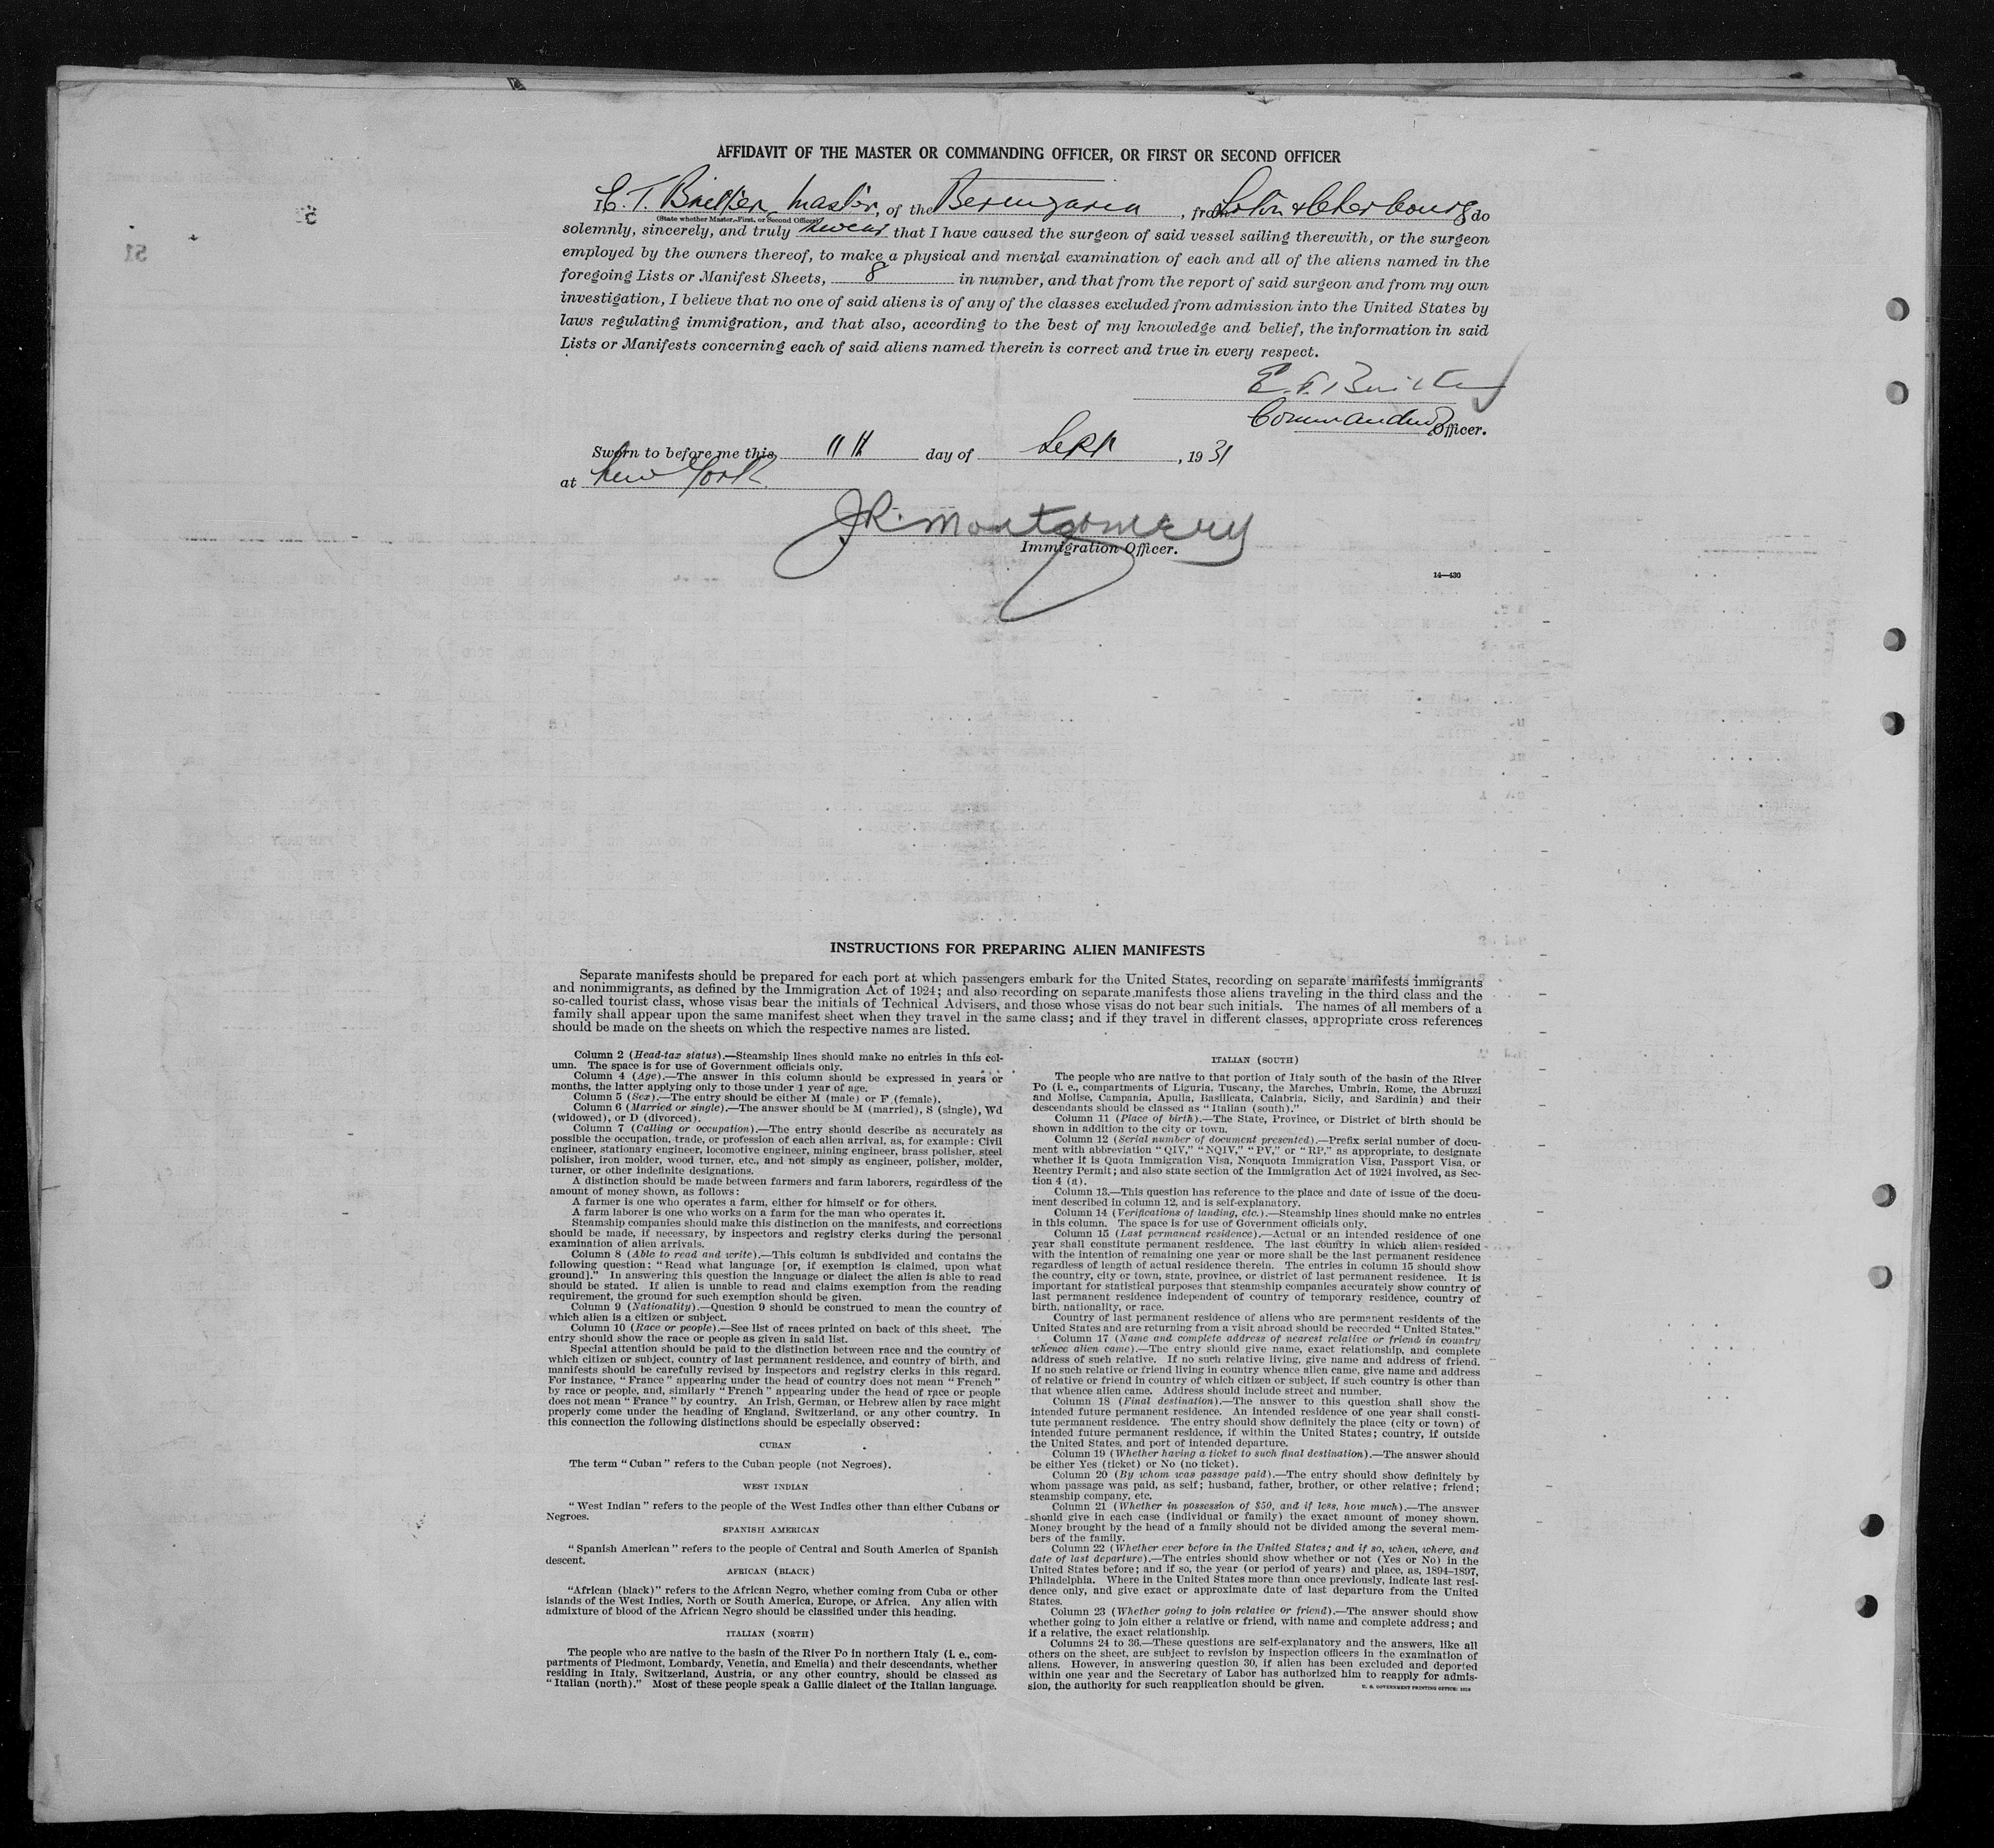 AFFIDAVIT OF THE MASTER OR COMMANDING OFFICER, OR FIRST OR SECOND OFFICER
I, E. T. Britten, Master, of the Berengaria, from Soton & Cherbourg do
(State whether Master, First, or Second Officer)
solemnly, sincerely, and truly swear that I have caused the surgeon of said vessel sailing therewith, or the surgeon
employed by the owners thereof, to make a physical and mental examination of each and all of the aliens named in the
foregoing Lists or Manifest Sheets, 8 in number, and that from the report of said surgeon and from my own
investigation, I believe that no one of said aliens is of any of the classes excluded from admission into the United States by
laws regulating immigration, and that also, according to the best of my knowledge and belief, the information in said
Lists or Manifests concerning each of said aliens named therein is correct and true in every respect.
E. T. Britten
Commanding Officer.
Sworn to before me this 11 day of Sept, 1931
at New York
J R. Montgomery
Immigration Officer.
14—430
51
INSTRUCTIONS FOR PREPARING ALIEN MANIFESTS
Separate manifests should be prepared for each port at which passengers embark for the United States, recording on separate manifests immigrants
and nonimmigrants, as defined by the Immigration Act of 1924; and also recording on separate manifests those aliens traveling in the third class and the
so-called tourist class, whose visas bear the initials of Technical Advisers, and those whose visas do not bear such initials. The names of all members of a
family shall appear upon the same manifest sheet when they travel in the same class; and if they travel in different classes, appropriate cross references
should be made on the sheets on which the respective names are listed.
Column 2 (Head-tax status).—Steamship lines should make no entries in this col-
umn. The space is for use of Government officials only.
Column 4 (Age).—The answer in this column should be expressed in years or
months, the latter applying only to those under 1 year of age.
Column 5 (Sex).—The entry should be either M (male) or F (female).
Column 6 (Married or single).—The answer should be M (married), S (single), Wd
(widowed), or D (divorced).
Column 7 (Calling or occupation).—The entry should describe as accurately as
possible the occupation, trade, or profession of each alien arrival, as, for example: Civil
engineer, stationary engineer, locomotive engineer, mining engineer, brass polisher, steel
polisher, iron molder, wood turner, etc., and not simply as engineer, polisher, molder,
turner, or other indefinite designations.
A distinction should be made between farmers and farm laborers, regardless of the
amount of money shown, as follows:
A farmer is one who operates a farm, either for himself or for others.
A farm laborer is one who works on a farm for the man who operates it.
Steamship companies should make this distinction on the manifests, and corrections
should be made, if necessary, by inspectors and registry clerks during the personal
examination of alien arrivals.
Column 8 (Able to read and write).—This column is subdivided and contains the
following question: "Read what language [or, if exemption is claimed, upon what
ground]." In answering this question the language or dialect the alien is able to read
should be stated. If alien is unable to read and claims exemption from the reading
requirement, the ground for such exemption should be given.
Column 9 (Nationality).—Question 9 should be construed to mean the country of
which alien is a citizen or subject.
Column 10 (Race or people).—See list of races printed on back of this sheet. The
entry should show the race or people as given in said list.
Special attention should be paid to the distinction between race and the country of
which citizen or subject, country of last permanent residence, and country of birth, and
manifests should be carefully revised by inspectors and registry clerks in this regard.
For instance, "France" appearing under the head of country does not mean "French"
by race or people, and, similarly "French" appearing under the head of race or people
does not mean "France" by country. An Irish, German, or Hebrew alien by race might
properly come under the heading of England, Switzerland, or any other country. In
this connection the following distinctions should be especially observed:
CUBAN
The term "Cuban" refers to the Cuban people (not Negroes).
WEST INDIAN
"West Indian" refers to the people of the West Indies other than either Cubans or
Negroes.
SPANISH AMERICAN
"Spanish American" refers to the people of Central and South America of Spanish
descent.
AFRICAN (BLACK)
"African (black)" refers to the African Negro, whether coming from Cuba or other
islands of the West Indies, North or South America, Europe, or Africa. Any alien with
admixture of blood of the African Negro should be classified under this heading.
ITALIAN (NORTH)
The people who are native to the basin of the River Po in northern Italy (i. e., com-
partments of Piedmont, Lombardy, Venetia, and Emelia) and their descendants, whether
residing in Italy, Switzerland, Austria, or any other country, should be classed as
"Italian (north)." Most of these people speak a Gallic dialect of the Italian language.
ITALIAN (SOUTH)
The people who are native to that portion of Italy south of the basin of the River
Po (i. e., compartments of Liguria, Tuscany, the Marches, Umbria, Rome, the Abruzzi
and Molise, Campania, Apulia, Basilicata, Calabria, Sicily, and Sardinia) and their
descendants should be classed as "Italian (south)."
Column 11 (Place of birth).—The State, Province, or District of birth should be
shown in addition to the city or town.
Column 12 (Serial number of document presented).—Prefix serial number of docu-
ment with abbreviation "QIV," "NQIV," "PV," or "RP," as appropriate, to designate
whether it is Quota Immigration Visa, Nonquota Immigration Visa, Passport Visa, or
Reentry Permit; and also state section of the Immigration Act of 1924 involved, as Sec-
tion 4 (a).
Column 13.—This question has reference to the place and date of issue of the docu-
ment described in column 12, and is self-explanatory.
Column 14 (Verifications of landing, etc.).—Steamship lines should make no entries
in this column. The space is for use of Government officials only.
Column 15 (Last permanent residence).—Actual or an intended residence of one
year shall constitute permanent residence. The last country in which alien resided
with the intention of remaining one year or more shall be the last permanent residence
regardless of length of actual residence therein. The entries in column 15 should show
the country, city or town, state, province, or district of last permanent residence. It is
important for statistical purposes that steamship companies accurately show country of
last permanent residence independent of country of temporary residence, country of
birth, nationality, or race.
Country of last permanent residence of aliens who are permanent residents of the
United States and are returning from a visit abroad should be recorded "United States."
Column 17 (Name and complete address of nearest relative or friend in country
whence alien came).—The entry should give name, exact relationship, and complete
address of such relative. If no such relative living, give name and address of friend.
If no such relative or friend living in country whence alien came, give name and address
of relative or friend in country of which citizen or subject, if such country is other than
that whence alien came. Address should include street and number.
Column 18 (Final destination).—The answer to this question shall show the
intended future permanent residence. An intended residence of one year shall consti-
tute permanent residence. The entry should show definitely the place (city or town) of
intended future permanent residence, if within the United States; country, if outside
the United States, and port of intended departure.
Column 19 (Whether having a ticket to such final destination).—The answer should
be either Yes (ticket) or No (no ticket).
Column 20 (By whom was passage paid).—The entry should show definitely by
whom passage was paid, as self; husband, father, brother, or other relative; friend;
steamship company, etc.
Column 21 (Whether in possession of $50, and if less, how much).—The answer
should give in each case (individual or family) the exact amount of money shown.
Money brought by the head of a family should not be divided among the several mem-
bers of the family.
Column 22 (Whether ever before in the United States; and if so, when, where, and
date of last departure).—The entries should show whether or not (Yes or No) in the
United States before; and if so, the year (or period of years) and place, as, 1894–1897,
Philadelphia. Where in the United States more than once previously, indicate last resi-
dence only, and give exact or approximate date of last departure from the United
States.
Column 23 (Whether going to join relative or friend).—The answer should show
whether going to join either a relative or friend, with name and complete address; and
if a relative, the exact relationship.
Columns 24 to 36.—These questions are self-explanatory and the answers, like all
others on the sheet, are subject to revision by inspection officers in the examination of
aliens. However, in answering question 30, if alien has been excluded and deported
within one year and the Secretary of Labor has authorized him to reapply for admis-
sion, the authority for such reapplication should be given.
U. S. GOVERNMENT PRINTING OFFICE: